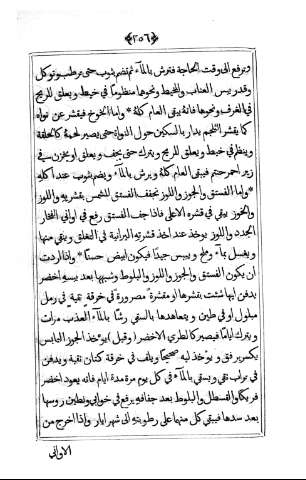 ﴿٢٥٦﴾
ويرفع الى وقت الحاجة فترش بالمآء ثم تضم بثوب حتى ترطب وتوكل
وقد يبس العناب والمخيط ونحوها منظوما في خيط ويعلق للريح
في الغرف ونحوها فانه يبقى العام كله * واما الخوخ فيقشر عن نواه
كما يقشر التلجم يدار بالسكين حول النواة حتى يصير لحمه كالحلقة
وينظم في خيط ويعلق للريح ويترك حتى يجف ويعلق او يخزن في
زير احمر ختم فيبقى العام كله ويرش بالمآء ويضم بثوب عند اكله
* واما الفستق والجوز واللوز فتجفف الفستق للشمس بقشريه واللوز
والجوز يبقى في قشره الاعلى فاذا جف الفستق رفع في اواني الفخار
الجدد واللوز يوخذ عند اخذ قشرته البرانية في التغلق وينقى منها
ويغسل بمآء وملح وييبس جيدا فيكون ابيض حسنا * واذا اردت
ان يكون الفستق والجوز واللوز والبلوط وشبهها بعد يبسه اخضر
يدفن ايها شئت بقشرها او مقشرة مصرورة في خرقة نقية في رمل
مبلول او في طين ويتعاهدها بالسقي رشا بالمآء العذب مرات
ويترك اياما فيصير كالطري الاخضر ( وقيل ) يوخذ الجوز اليابس
يكسر برفق ويوخذ لبه صحيحا ويلف في خرقة كتان نقية ويدفن
في تراب نقي ويسقى بالمآء في كل يوم مرة مدة ايام فانه يعود اخضر
فريكا والقسطل والبلوط بعد جفافه يرفع في خوابي وتطين روسها
بعد سدها فيبقى كل منها على رطوبته الى شهر ايار واذا اخرج من
الاواني